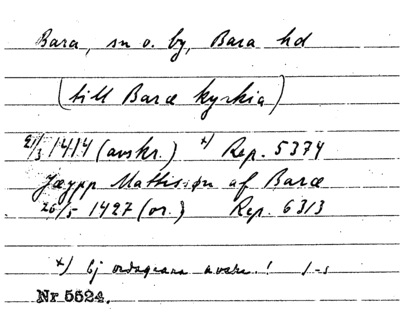 Bara, sn o. by, Bara hd
(till Baræ kyrkia)
21/3 1414 (avskr.) x) Rep. 5374
Jæypp Mattissøn af Baræ
26/5 1427 (or.) Rep. 6313
x) Ej ordagrann avskr!
Nr 5524.